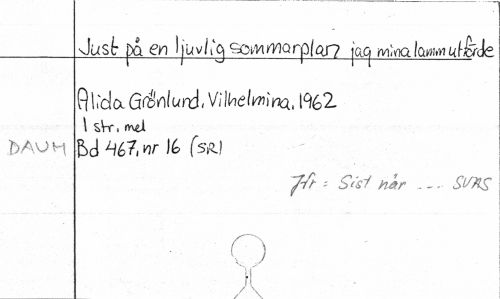 Just på en ljuvlig sommarplan jag mina lamm utförde
Alida Grönlund, Vilhelmina, 1962
1 str, mel
DAUM Bd 467, nr 16 (SR)
Jfr = Sist når ... SVAS